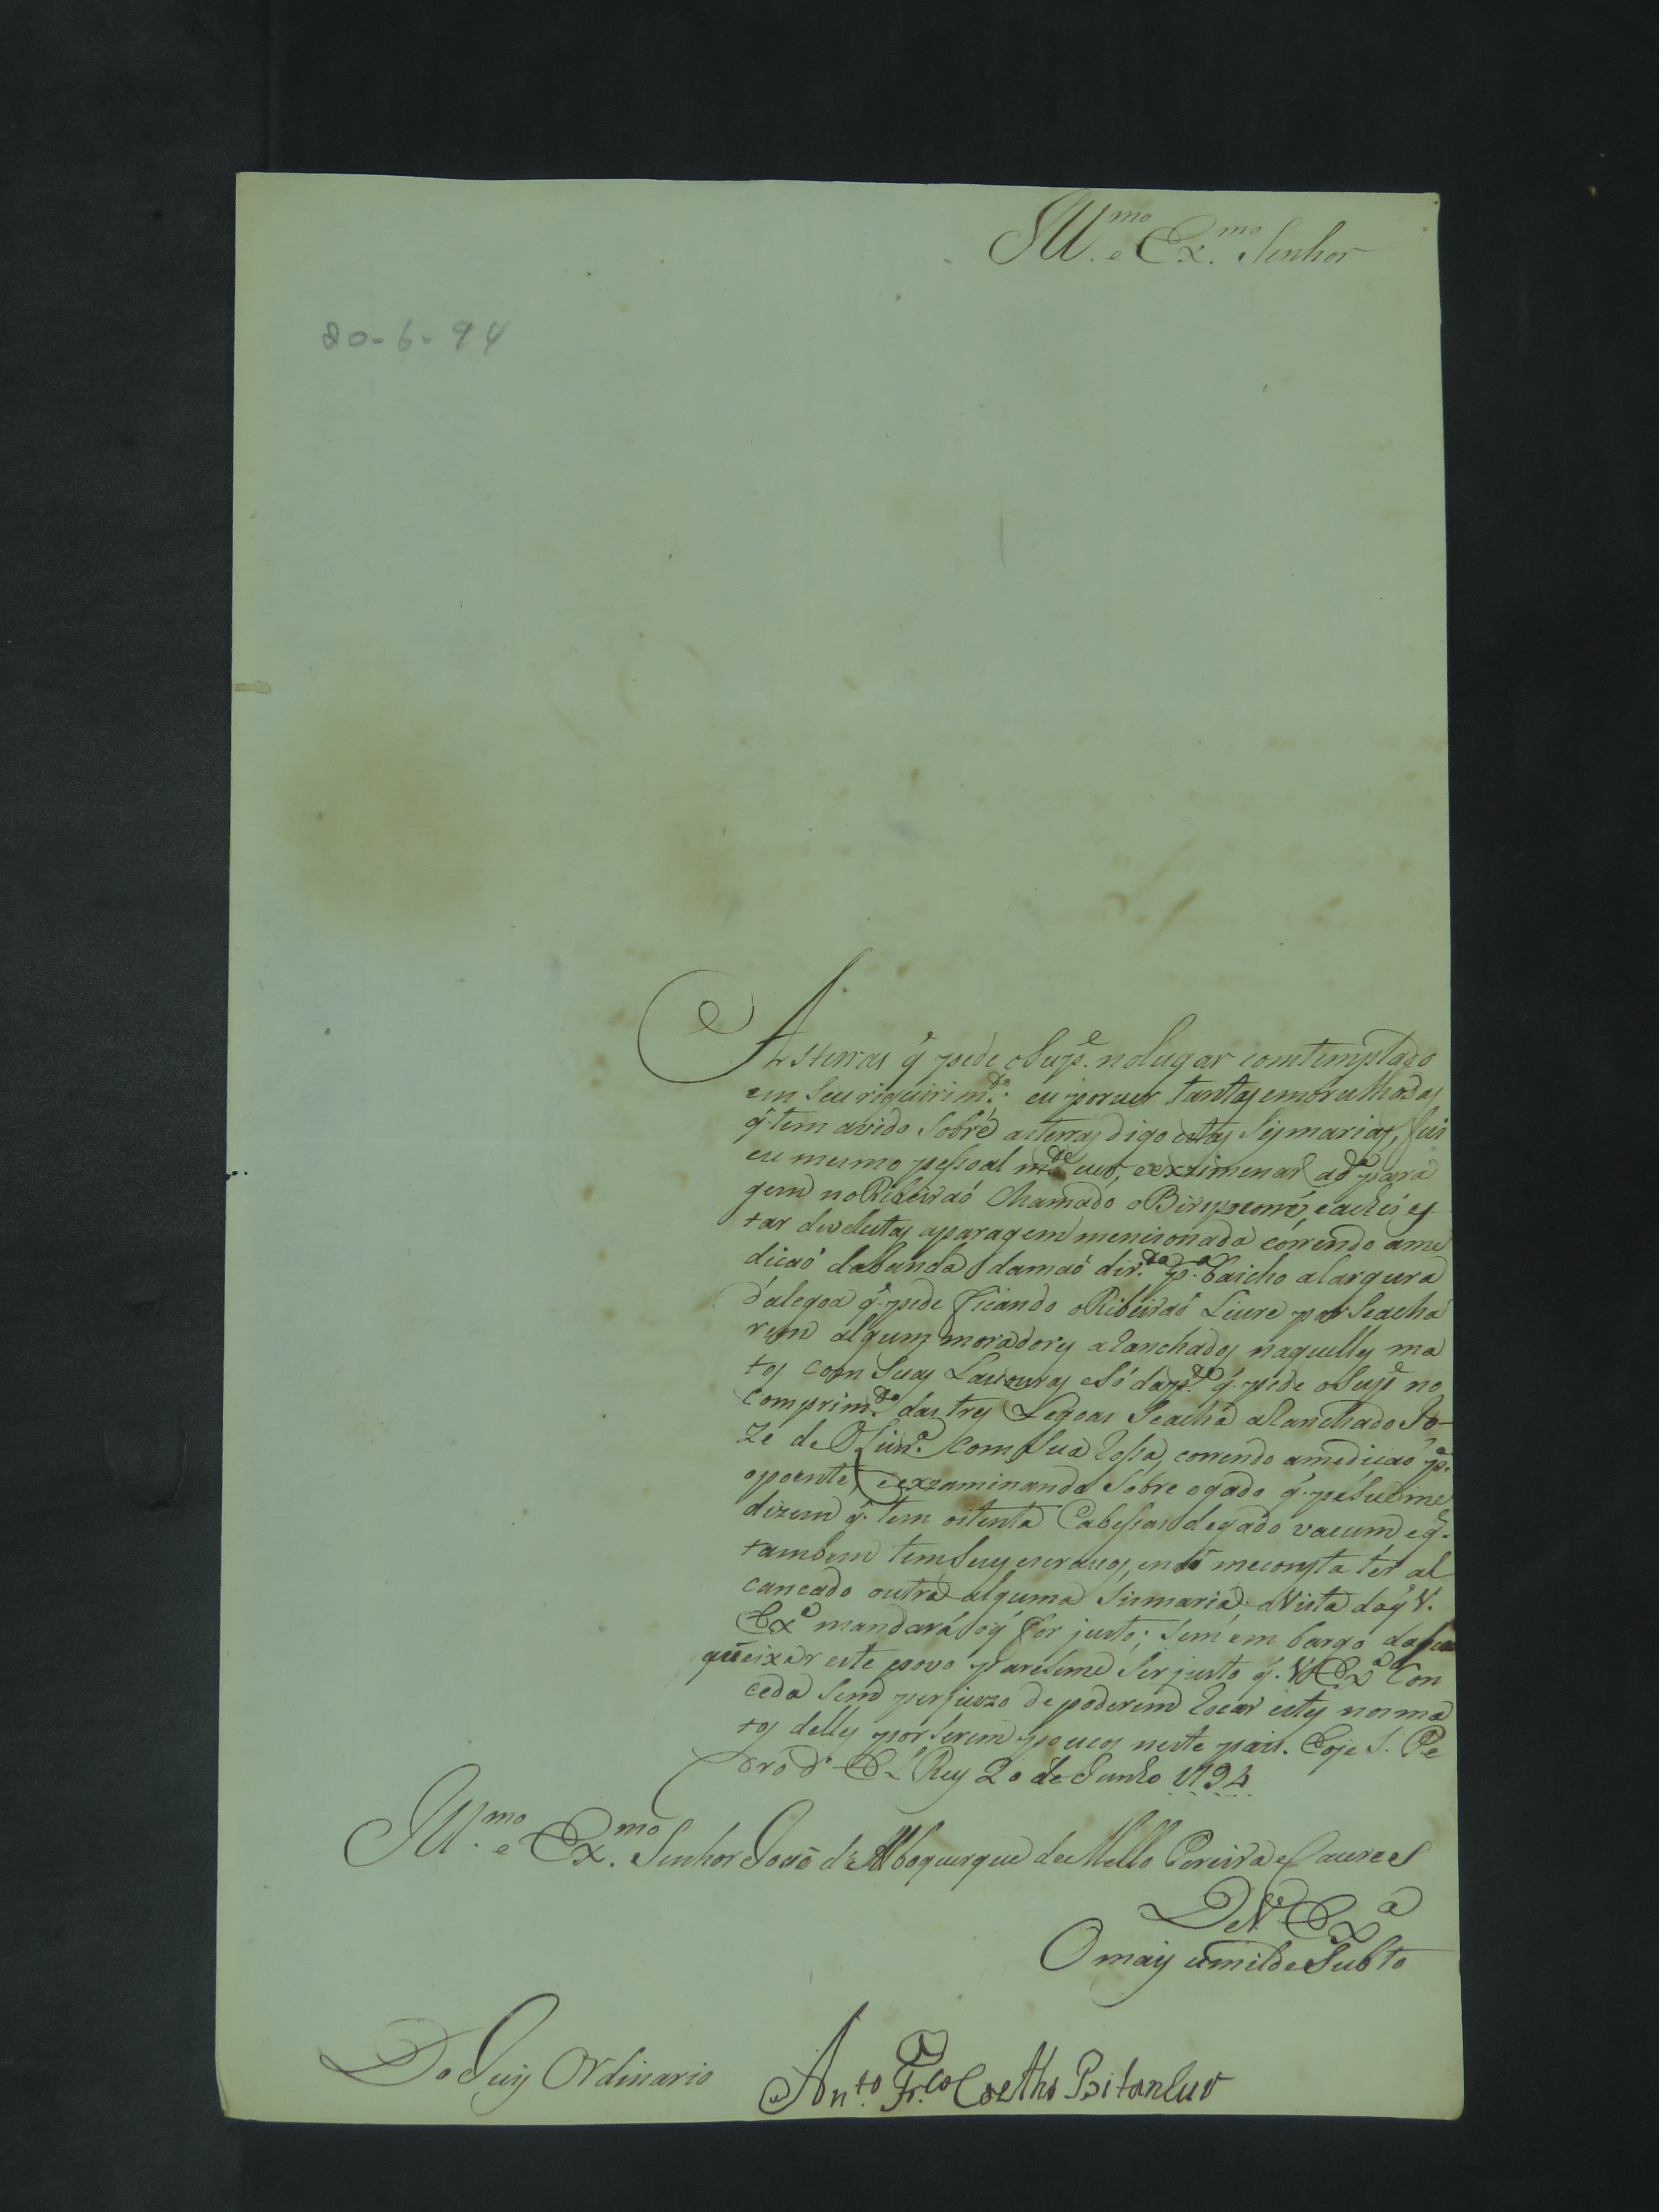 Ill.mo e Ex.mo Senhor
20-6-94
As terras q̃ pede o Sup.e no lugar comtemplado
em Seu riquirim.to: eu por ver tantas embrulhadas
q̃ tem avido Sobre as terras digo estas Sismarias, fui
eu mesmo pessoal m.te ver, e exziminar a d.a para
gem no Ribeiraó Chamado o Biry e achei es
tar devolutas aparagem mencionada correndo ame
dicaó dabanda damaó dir.ta p.a baicho alargura
dalegoa q̃ pede ficando o Ribeiraó Livre por Seacha
rem alguns moradores aranchados naquelles ma
tos com Suas Lavouras e Só da p.te q̃ pede o Sup.e no
comprim.to das tres Legoas Seacha aRanchado Jo-
zé de Olivr.a com Sua Rossa, correndo amedicaó p.a
opoente, e exzaminando Sobre ogado q̃ pesue me
dizem q̃ tem oitenta Cabessas degado vacum e q̃
tambem tem Seus escravos, enaõ meconsta ter al
cancado outra alguma Sismaria. aVista do q̃ V.
Ex.a mandará o q̃ for justo; Sem em bargo
queixar este povo pareseme Ser justo q̃ V. Ex.a Con
ceda Sem perjuizo de poderem Rocar estes nos ma
tos delles por Serem poucos neste pais. Hoje S. Pe
dro d'El Rey 20 de Junho 1794
Ill.mo e Ex.mo Senhor Joaõ d'Alboquerque de Mello Pereira e Caceres
De V. Ex.a
O mais umilde Subto
Do Juis Ordinario
Ant.o Fr.co Coelho